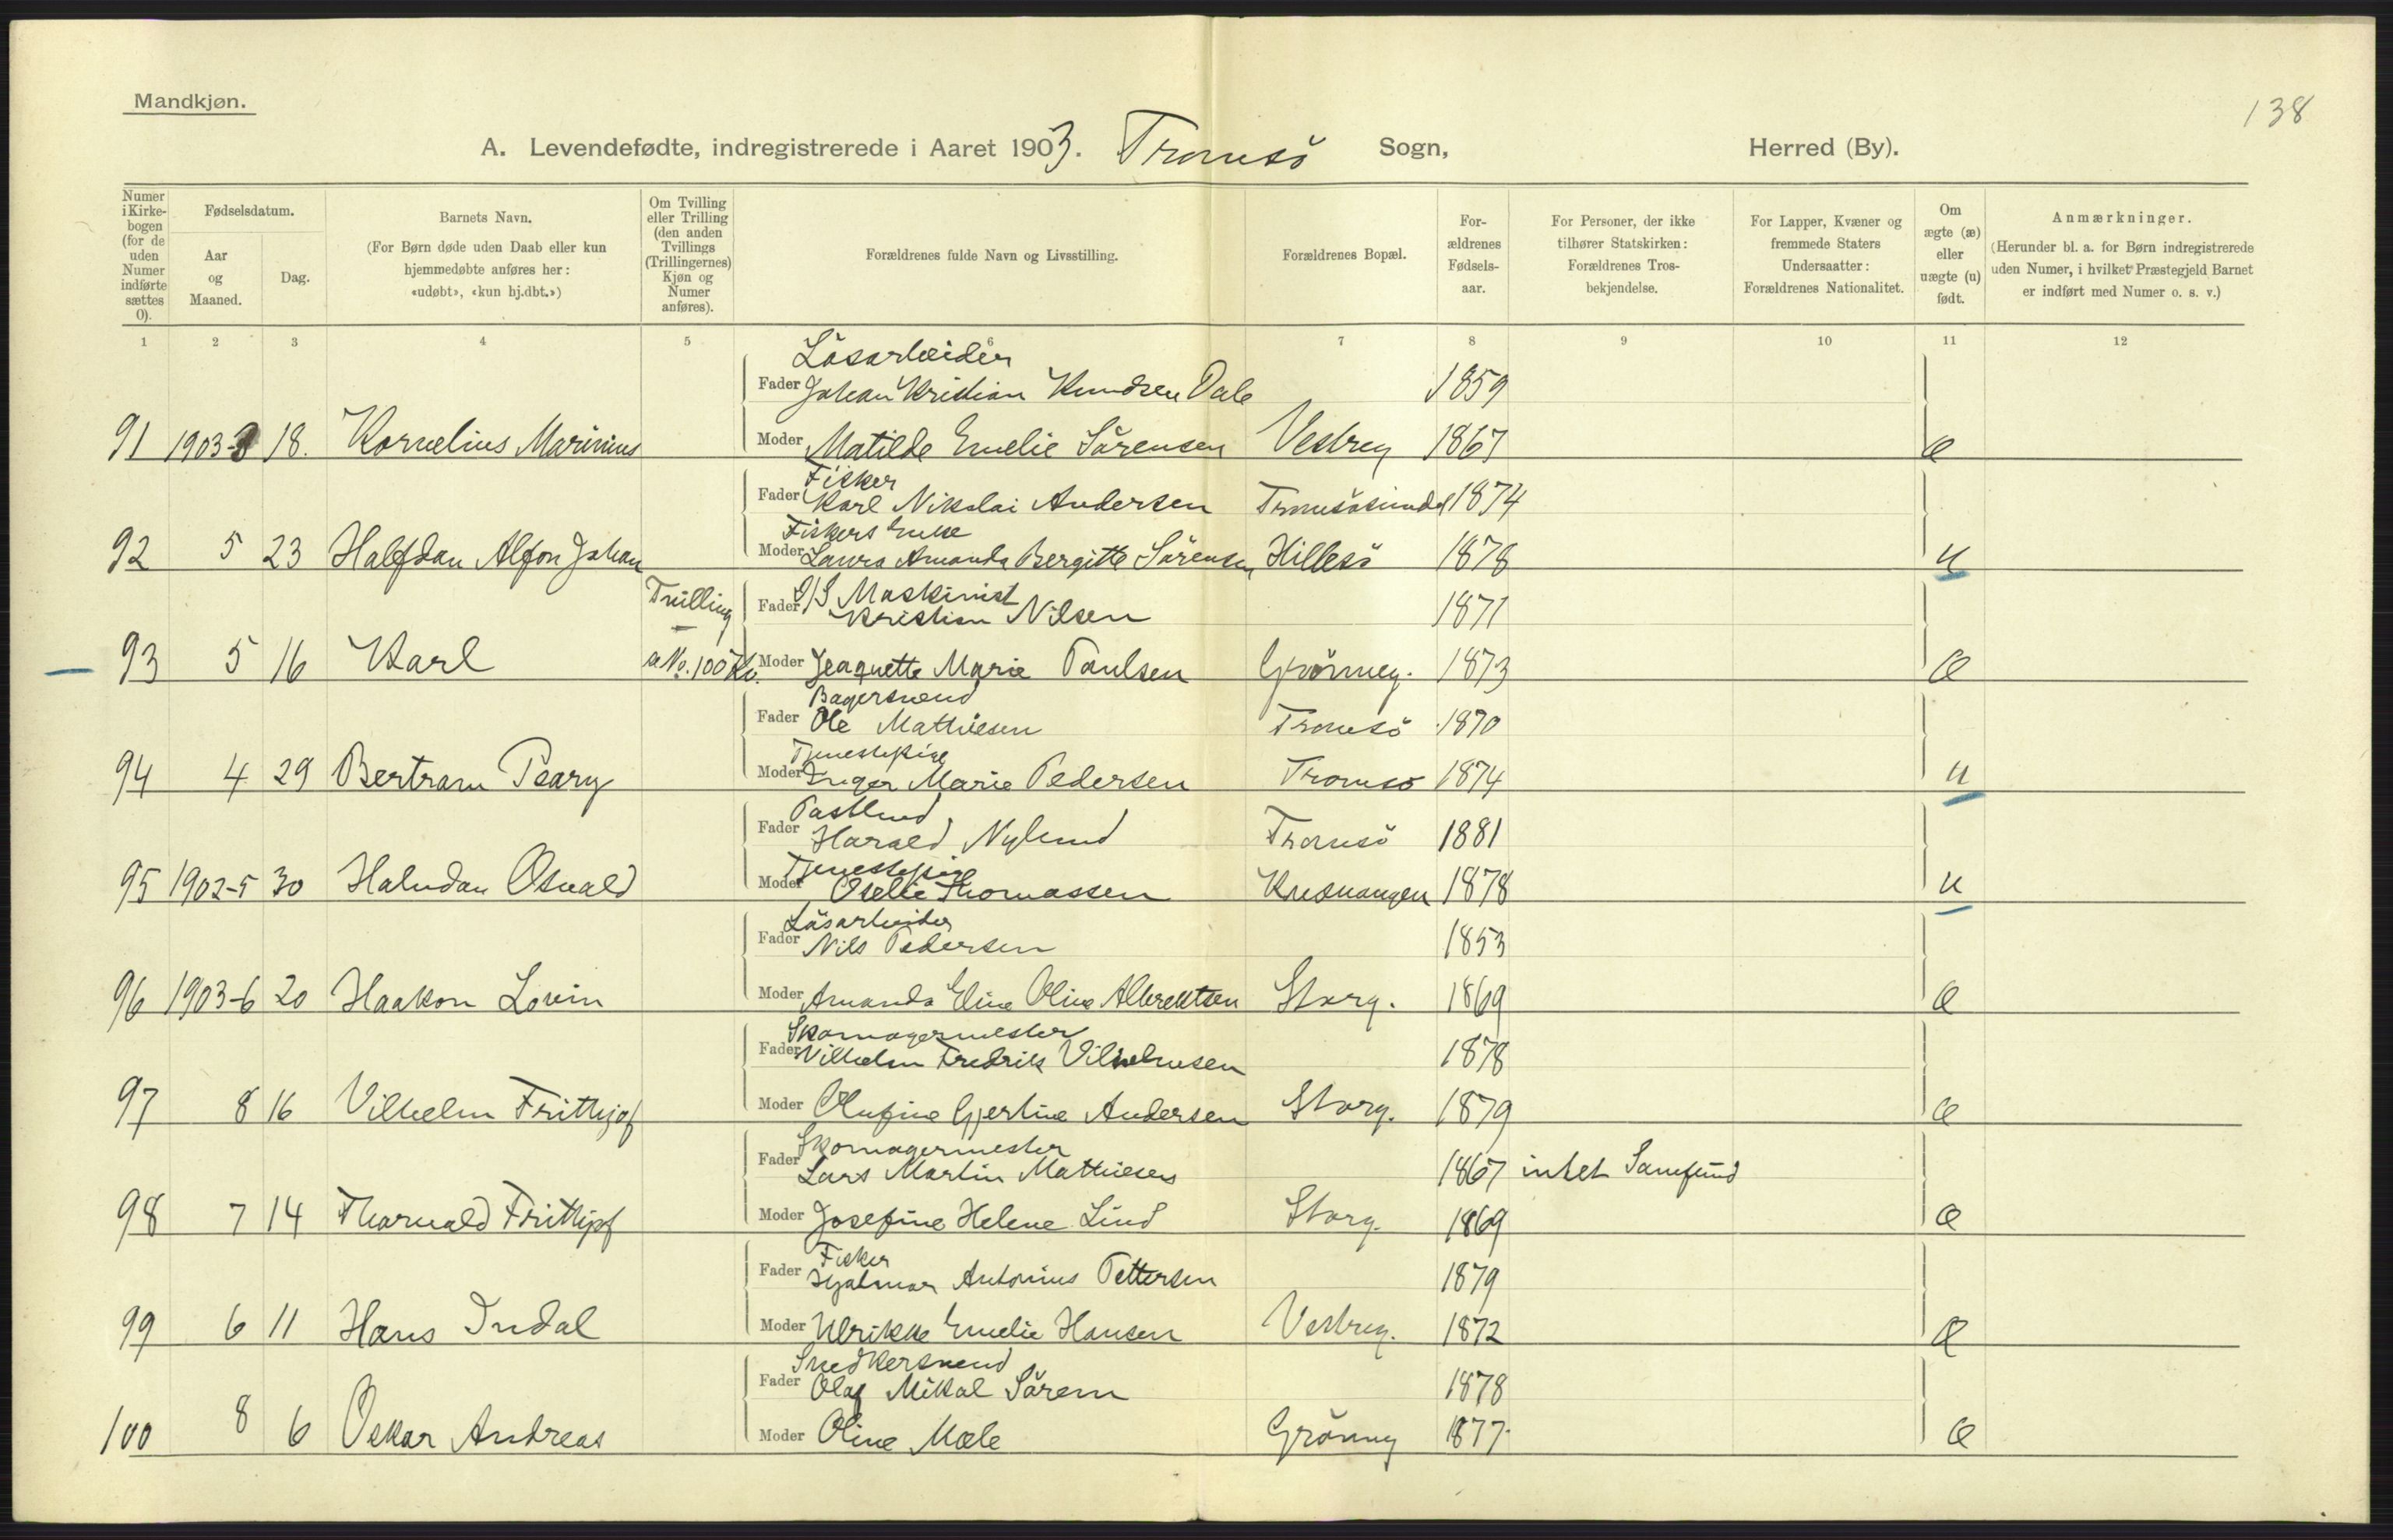 Mandkjøn.
138
A. Levendefødte, indregistrerede i Aaret 1903. Tromsö Sogn, Herred (By).
Numer i Kirkebogen (for de uden Numer indførte sættes 0).
Fødselsdatum.
Aar og Maaned.
Dag.
Barnets Navn.
(For Børn døde uden Daab eller kun hjemmedøbte anføres her: «udøbt», «kun hj.dbt.»)
Om Tvilling eller Trilling (den anden Tvillings (Trillingernes) Kjøn og Numer anføres).
Forældrenes fulde Navn og Livsstilling.
Forældrenes Bopæl.
Forældrenes Fødselsaar.
For Personer, der ikke tilhører Statskirken: Forældrenes Trosbekjendelse.
For Lapper, Kvæner og fremmede Staters Undersaatter: Forældrenes Nationalitet.
Om ægte (æ) eller uægte (u) født.
Anmærkninger.
(Herunder bl. a. for Børn indregistrerede uden Numer, i hvilket Præstegjeld Barnet er indført med Numer o. s. v.)
1 2 3 4 5 6 7 8 9 10 11 12
Lösarbeider
Fader Johan Kristian Knudsen Dale 1859
91 1903-3 18. Kornelius Marinius Moder Matilde Emelie Sörensen Vestreg 1867 æ
Fisker
Fader Karl Nikolai Andersen Tromsösundet 1874
Fiskers Enke
92 5 23 Halfdan Alfon Johan Moder Laura Amanda Bergitte Sörensen Hillesö 1878 u
Tvilling Fader D/S Maskinist
Kristian Nilsen 1871
93 5 16 Karl a No. 100 Kv. Moder Jeaquette Marie Paulsen Grönneg. 1873 æ
Bagersvend
Fader Ole Mathiesen Tromsö 1870
Tjenestepige
94 4 29 Bertram Peary Moder Inger Marie Pedersen Tromsö 1874 u
Postbud
Fader Harald Nylund Tromsö 1881
Tjenestepige
95 1902-5 30 Halvdan Osvald Moder Otelie Thomassen Kvænangen 1878 u
Lösarbeider
Fader Nils Pedersen 1853
96 1903-6 20 Haakon Lovin Moder Amanda Eline Oline Albrektsen Storg. 1869 æ
Skomagermester
Fader Vilhelm Fredrik Vilhelmsen 1878
97 8 16 Vilhelm Frithjof Moder Olufine Gjertine Andersen Storg. 1879 æ
Skomagermester
Fader Lars Martin Mathiesen 1867 intet Samfund
98 7 14 Thorvald Frithjof Moder Josefine Helene Lind Storg. 1869 æ
Fisker
Fader Hjalmar Antonius Pettersen 1879
99 6 11 Hans Indal Moder Ulrikke Emelie Hansen Vestreg. 1872 æ
Snedkersvend
Fader Olaf Mikal Sörem 1878
100 8 6 Oskar Andreas Moder Oline Mæle Grönneg 1877 æ